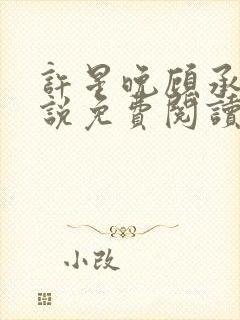 許星晚顧承
說免費閱讀
小改